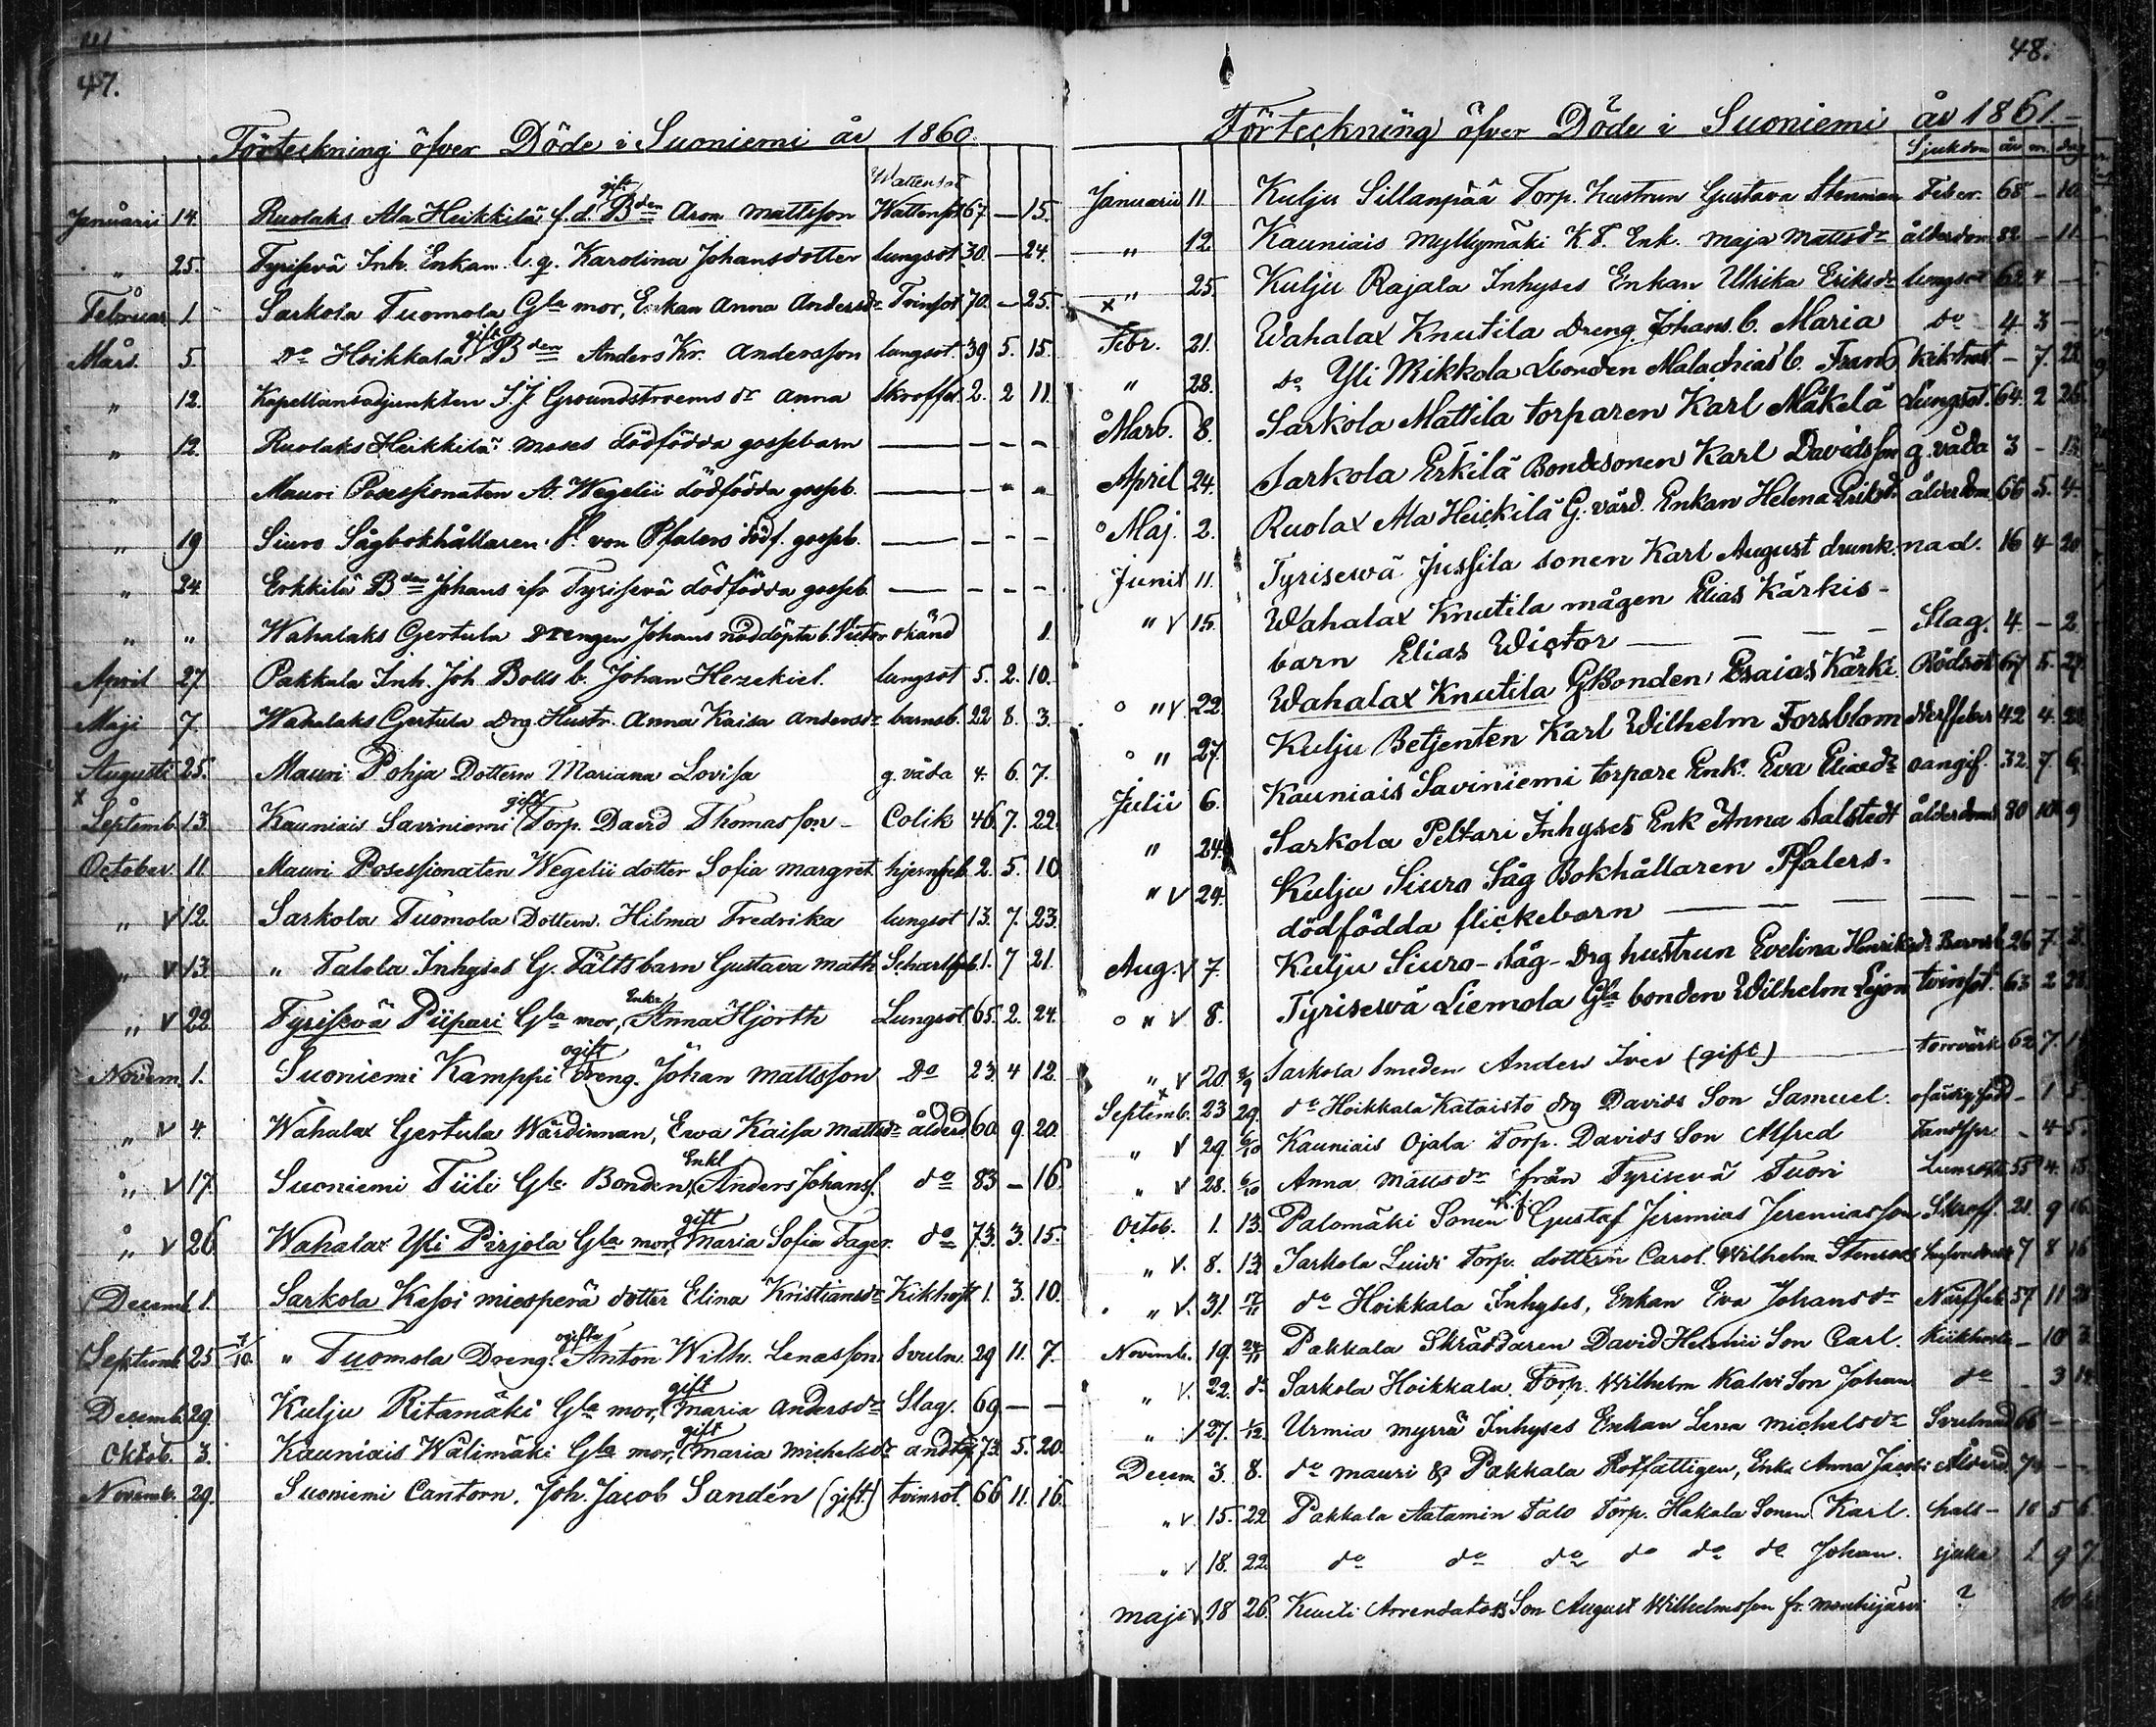 47.
Förteckning öfver Döde i Suoniemi år 1860.
Wattensot
Januarii 14. Ruolaks Ala Heikkilä f.d. gift Bden Aron Mattsson Wattensot 67. — 15.
" 25. Tyrisevä Inh. Enkan Karolina Johansdotter lungsot 30. — 24.
Februar 1. Sarkola Tuomola Gla mor, Enkan Anna Andersdr Tvinsot 70. — 25.
Mars. 5. Do Hoikkala gift Bden Anders Kr. Andersson lungsot. 39 5. 15.
" 12. Kapellansadjunkten J.J. Groundstroems dr Anna Skroffel. 2. 2 11.
" 12. Ruolaks Heikkilä Moses dödfödda gossebarn — — — —
" Mauri Possessionaten A. Wegelii dödfödda gosseb. — — " "
" 19 Siuro Sågbokhållaren von Pfalers dödf. gosseb. — — — —
" 24 Erkkilä Bden Johans ifr Tyrisevä dödfödda gosseb. — — — —
" " Wahalaks Gertula Drengen Johans nöddöpta b. Victor okänd 1.
April 27. Pakkala Inh. Joh Bolls b. Johan Hezekiel. lungsot 5. 2. 10.
Maji 7. Wahalaks Gertula Drg Hustr. Anna Kaisa Andersdr barnsb. 22 8. 3.
Augusti 25. Mauri Pohja Dottern Mariana Lovisa g. våda 4. 6. 7.
x
Septemb. 13. Kauniais Saviniemi gift Torp. David Thomasson — Colik 46. 7. 22.
October 11. Mauri Possessionaten Wegelii dotter Sofia Margret. hjernfeb. 2. 5. 10
" V 12. Sarkola Tuomola Dottern. Hilma Fredrika lungsot 13. 7. 23.
" V 13. " Talola Inhyses G. Fältsbarn Gustava Math Scharlfeb. 1. 7 21.
" V 22. Tyrisevä Piipari Gla mor, Enka Anna Hjorth Lungsot 65. 2. 24.
Novem. 1. Suoniemi Kamppi ogift Dreng. Johan Mattsson Do 23. 4 12.
" V 4. Wahalax Gertula Wärdinnan, Ewa Kaisa Mattsdr ålderd. 60. 9. 20.
" V 17. Suoniemi Tiili Gla Bonden, Enkl Anders Johanss. do 83 — 16.
" V 26. Wahalax Yli Pirjola Gla mor, gift Maria Sofia Fager. do 73. 3. 15.
Decemb. 1. Sarkola Kasoi miesperä dotter Elina Kristiansdr Kikhost 1. 3. 10.
Septemb. 25 7/10. " Tuomola Dreng. ogifta Anton Wilh. Lenasson Svuln. 29 11. 7.
Decemb. 29. Kulju Ritamäki Gla mor, gift Maria Andersdr Slag. 69. — —
Oktob. 3. Kauniais Wälimäki Gla mor, gift Maria Michelsdr andtäp. 73. 5. 20.
Novemb. 29. Suoniemi Cantorn. Joh. Jacob Sandén (gift.) tvinsot. 66 11. 16.
48.
Förteckning öfver Döde i Suoniemi år 1861.
Sjukdom år m. dag
Januarii 11. Kulju Sillanpää Torp. hustrun Gustava Stenman Feber. 68 — 10.
" 12. Kauniais Myllymäki K T. Enk. Maja Mattsdr ålderdom 82 — 11.
x " 25. Kulju Rajala Inhyses Enkan Ulrika Eriksdr lungsot 62 4 —
Febr. 21. Wahalax Knutila Dreng. Johans b. Maria do 4 3 —
" 28. do Yli Mikkola Bonden Malachias b. Frans kikhost — 7. 22.
Mars. 8. Sarkola Mattila torparen Karl Mäkelä Lungsot. 64. 2 26.
April 24. Sarkola Erkilä Bondesonen Karl Davidsson g. våda 3 — 13.
Maj. 2. Ruolax Ala Heickilä G. värd. Enkan Helena Eriksdr ålderdom 66 5. 4.
Junii 11. Tyrisewä Jussila sonen Karl August drunknad. 16 4 20
" V 15. Wahalax Knutila mågen Elias Kärkis-
barn Elias Wictor — — — — Slag. 4. — 2.
" V 22. Wahalax Knutila G Bonden Esaias Kärki Rödsot 67 5. 27.
" 27. Kulju Betjenten Karl Wilhelm Forsblom Nerffeber 42 4. 28
Julii 6. Kauniais Saviniemi torpare Enk. Eva Eliasdr oangif. 32. 7. 6.
" 24. Sarkola Peltari Inhyses Enk Anna Salstedt ålderdom 80 10 9
" V 24. Kulju Siuro Såg Bokhållaren Pfalers-
dödfödda flickebarn — — — — — —
Aug. V 7. Kulju Siuro-såg-Drg hustrun Evelina Henriksdr Barnsb. 26 7. 3.
" V. 8. Tyrisewä Liemola Gla bonden Wilhelm Lejon tvinsot. 63 2 28.
" V 20. Sarkola Smeden Anders Iver (gift) — torrvärk 62 7.
Septemb. 23 29. do Hoikkala Kataisto drg Davids Son Samuel. 1 5.
" V 29. 6/10 Kauniais Ojala Torp. Davids Son Alfred Tandspr. — 4 5.
" V 28. 6/10 Anna Mattsdr från Tyrisevä Tuori Lungsot 55 4. 18.
Octob. 1. 13. Palomäki Sonen Gustaf Jeremias Jeremiasson Skroff. 21. 9 16.
" V. 8. 13 Sarkola Luivi Torp. dottern Carol. Wilhelm. 7 8 16
" V. 31. 17/11 do Hoikkala Inhyses, Enkan Eva Johansdr Närffeb. 57 11 28.
Novemb. 19. 24/11 Pakkala Skräddaren David Helenii Son Carl. Kikhosta — 10 3.
" V. 22. do Sarkola Hoikkala Torp. Wilhelm Kalvi Son Johan do — 3 14.
" V 27. 1/12. Urmia myrrä Inhyses Enkan Lena Michelsdr Svulnad 66 — —
Decem. 3. 8. do Mauri & Pakkala Rotfattigen, Enka Anna Jacobs Ålderd. 74 — —
" V. 15. 22 Pakkala Aatamin Talo Torp. Hakala Sonen Karl. hals- 10 5 6.
" V 18. 22. do do do do do do Johan. sjuka 1 9 7
Maji V. 18 26. Arrendators Son August Wilhelmsson fr. Mouhijärvi ? 10